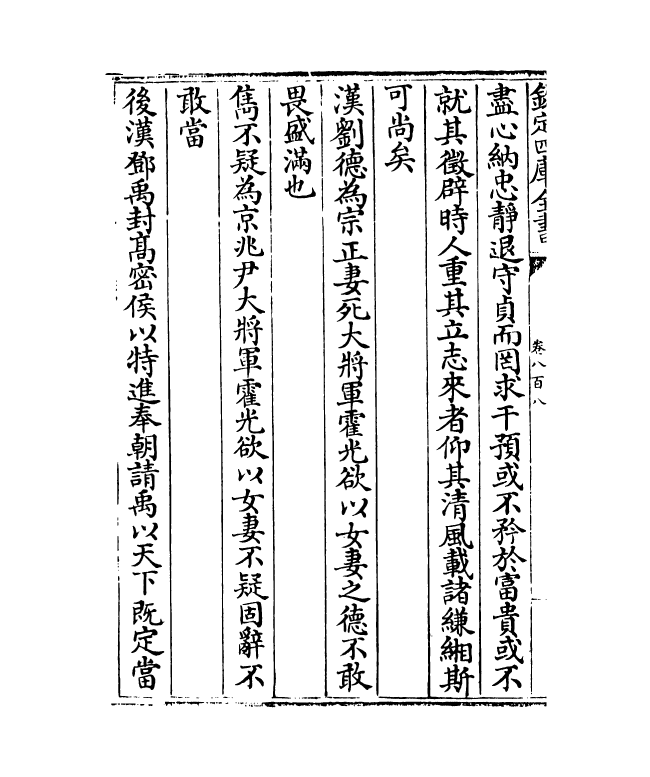 欽定四庫全書
卷八百八
盡心納忠靜退守貞而罔求干預或不矜於富貴或不
就其徵辟時人重其立志來者仰其清風載諸縑緗斯
可尚矣
漢劉德為宗正妻死大將軍霍光欲以女妻之德不敢
畏盛滿也
雋不疑為京兆尹大將軍霍光欲以女妻不疑固辭不
敢當
後漢鄧禹封高密侯以特進奉朝請禹以天下既定當